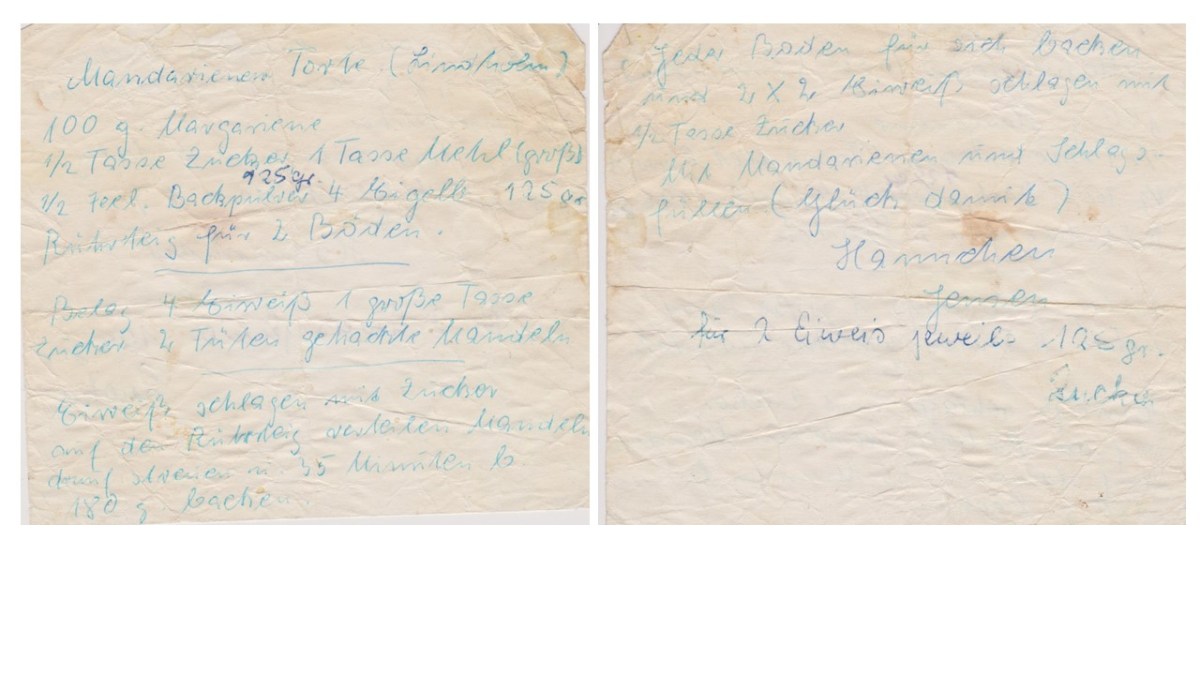 Mandarienen Torte (Lindholm)
100 g. Margariene
1/2 Tasse Zucker 1 Tasse Mehl (groß)
125 gr.
1/2 Teel. Backpulver 4 Eigelb 125 gr
Rührteig für 2 Böden.
Belag 4 Eiweiß 1 große Tasse
Zucker 2 Tüten gehackte Mandeln
Eiweiß schlagen mit Zucker
auf den Rührteig verteilen Mandeln
drauf streuen u. 35 Minuten b.
180 g backen.
Jeder Boden für sich backen
und 2 X 2 Eiweiß schlagen mit
1/2 Tasse Zucker
Mit Mandarienen und Schlags.
füllen (Glück damit)
Hannchen
Jensen
für 2 Eiweis jeweils 125 gr.
Zucker